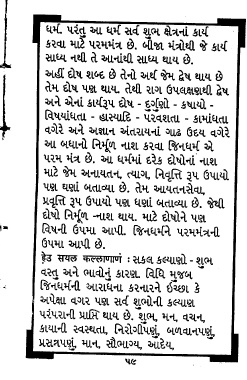 ધર્મ. પરંતુ આ ધર્મ સર્વ શુભ ક્ષેત્રનાં કાર્ય
કરવા માટે પરમમંત્ર છે. બીજા મંત્રોથી જે કાર્ય
સાધ્ય નથી તે આનાંથી સાધ્ય થાય છે.
અહીં દોષ શબ્દ છે તેનો અર્થ જેમ દ્વેષ થાય છે
તેમ દોષ પણ થાય. તેથી રાગ ઉપલક્ષણથી દ્વેષ
અને એનાં કાર્યરૂપ દોષ - દુર્ગુણો - કષાયો -
વિષયાંધતા - હાસ્યાદિ - પરવશતા - કામાંધતા
વગેરે અને અજ્ઞાન અંતરાયનાં ગાઢ ઉદય વગેરે
આ બધાનો નિર્મૂળ નાશ કરવા જિનધર્મ એ
પરમ મંત્ર છે. આ ધર્મમાં દરેક દોષોનાં નાશ
માટે જેમ અનાયતન, ત્યાગ, નિવૃત્તિ રૂપ ઉપાયો
પણ ઘણાં બતાવ્યા છે. તેમ આયતનસેવા,
પ્રવૃત્તિ રૂપ ઉપાયો પણ ઘણાં બતાવ્યા છે. જેથી
દોષો નિર્મૂળ -નાશ થાય. માટે દોષોને પણ
વિષની ઉપમા આપી. જિનધર્મને પરમમંત્રની
ઉપમા આપી છે.
હેઉ સયલ કલ્લાણાણં : સકલ કલ્યાણો - શુભ
વસ્તુ અને ભાવોનું કારણ. વિધિ મુજબ
જિનધર્મની આરાધના કરનારને ઈચ્છા કે
અપેક્ષા વગર પણ સર્વ શુભોની કલ્યાણ
પરંપરાની પ્રાપ્તિ થાય છે. શુભ, મન, વચન,
કાયાની સ્વસ્થતા, નિરોગીપણું, બળવાનપણું,
પ્રસન્નપણું, માન, સૌભાગ્ય, આદેય,
૫૯